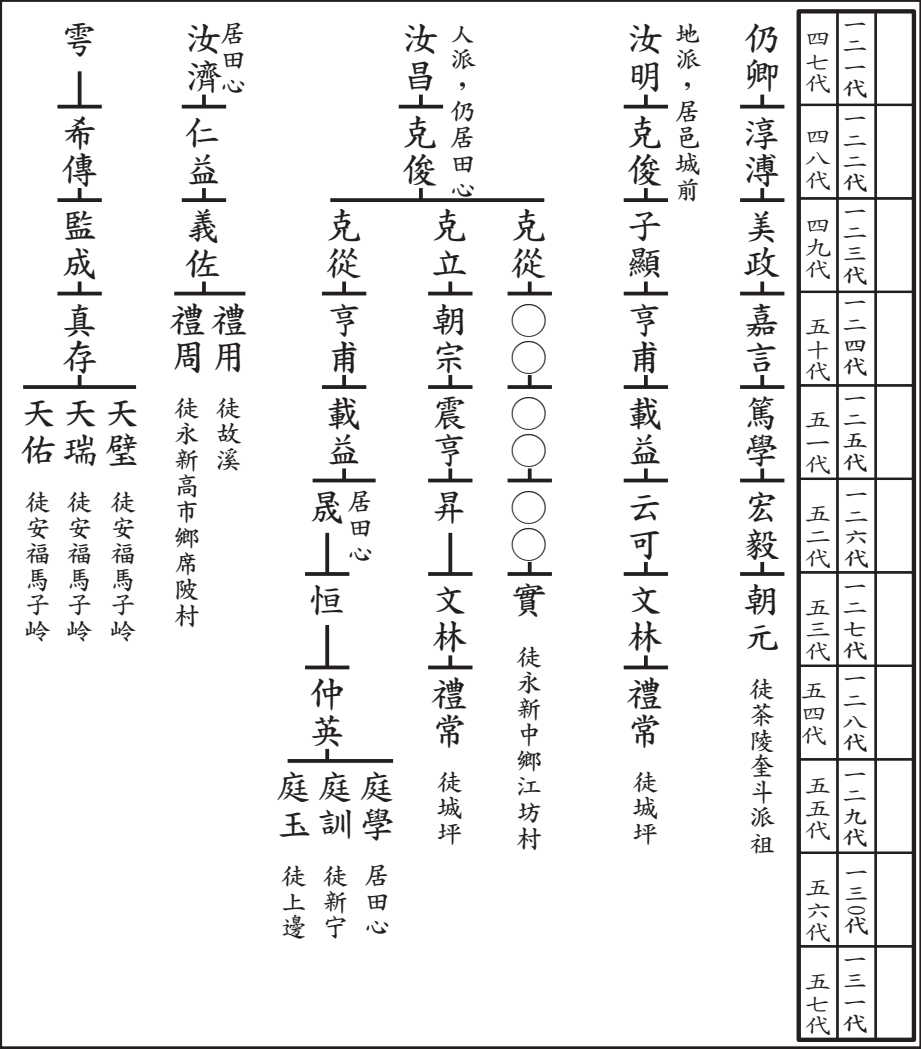 一二一代
一二二代
一二三代
一二四代
一二五代
一二六代
一二七代
一二八代
一二九代
一三〇代
一三一代
四七代
四八代
四九代
五十代
五一代
五二代
五三代
五四代
五五代
五六代
五七代
仍卿
淳溥
美政
嘉言
篤學
宏毅
朝元
徒茶陵奎斗派祖
地派，居邑城前
汝明
克俊
子顯
亨甫
載益
云可
文林
禮常
徒城坪
人派，仍居田心
汝昌
克俊
克從
〇〇
〇〇
〇〇
實
徒永新中鄉江坊村
克立
朝宗
震亨
昇
文林
禮常
徒城坪
克從
亨甫
載益
居田心
晟
恒
仲英
庭學
居田心
庭訓
徒新宁
庭玉
徒上邊
居田心
汝濟
仁益
義佐
禮用
徒故溪
禮周
徒永新高市鄉席陂村
雩
希傳
監成
真存
天璧
徒安福馬子岭
天瑞
徒安福馬子岭
天佑
徒安福馬子岭